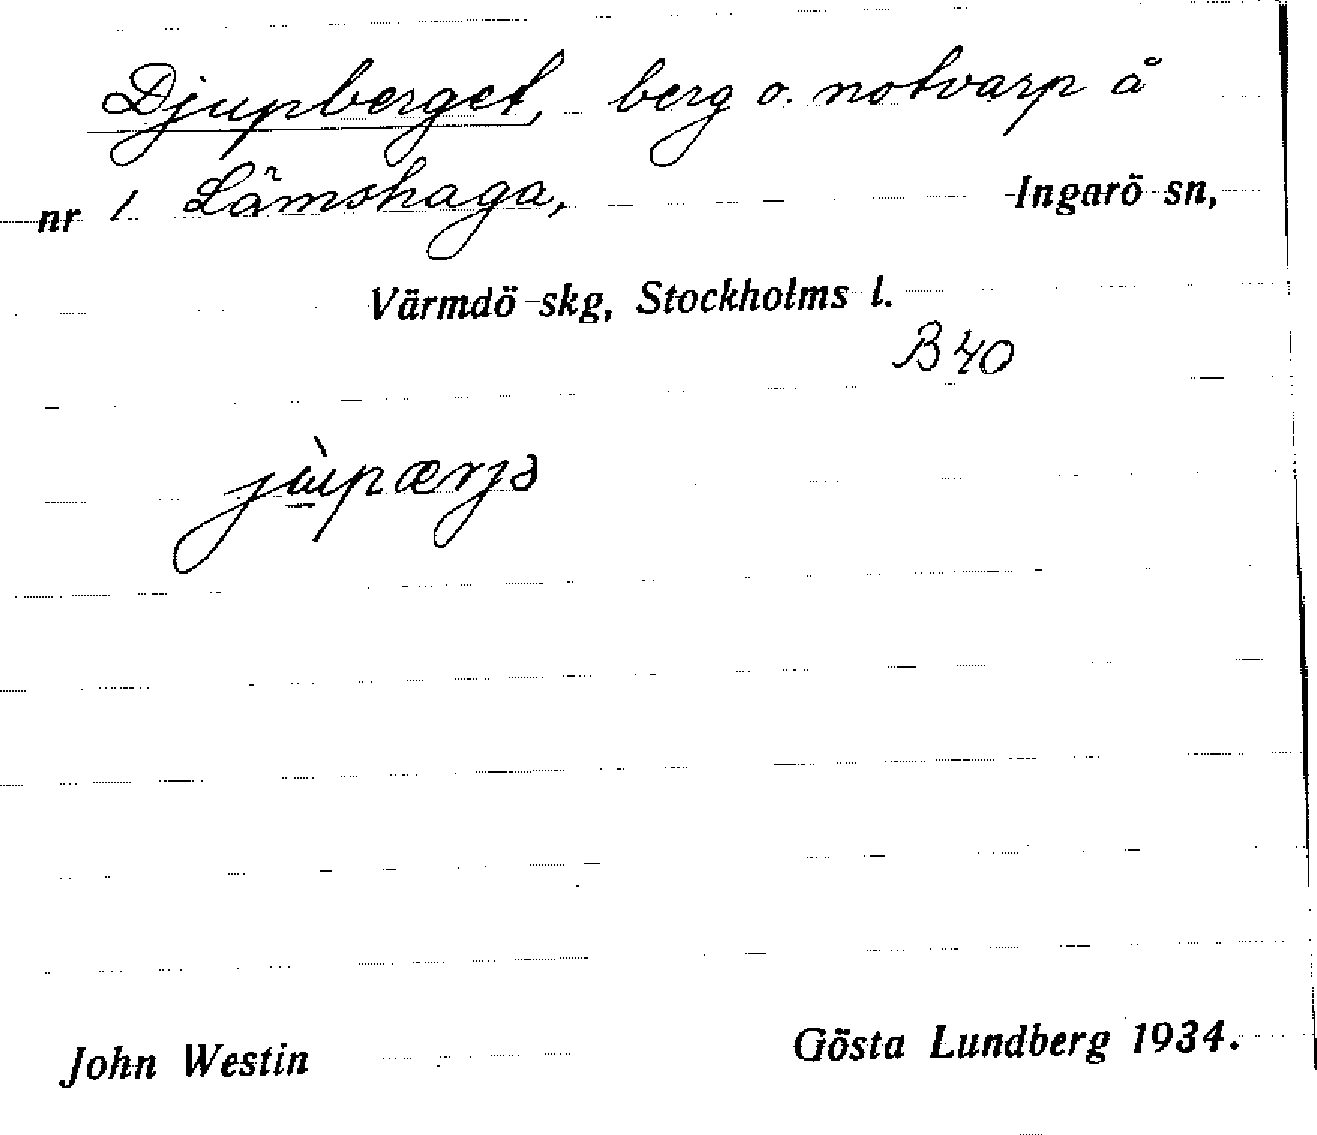 Djupberget, berg o. notvarp å
nr 1 Lämshaga, Ingarö sn,
Värmdö skg, Stockholms l.
B 40
jùpærjə
John Westin Gösta Lundberg 1934.